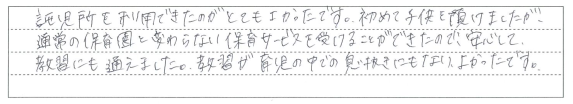 託児所を利用できたのがとてもよかったです。初めて子供を預けましたが、
通常の保育園と変わらない保育サービスを受けることができたので、安心して
教習にも通えました。教習が育児の中での息抜きにもなり、よかったです。